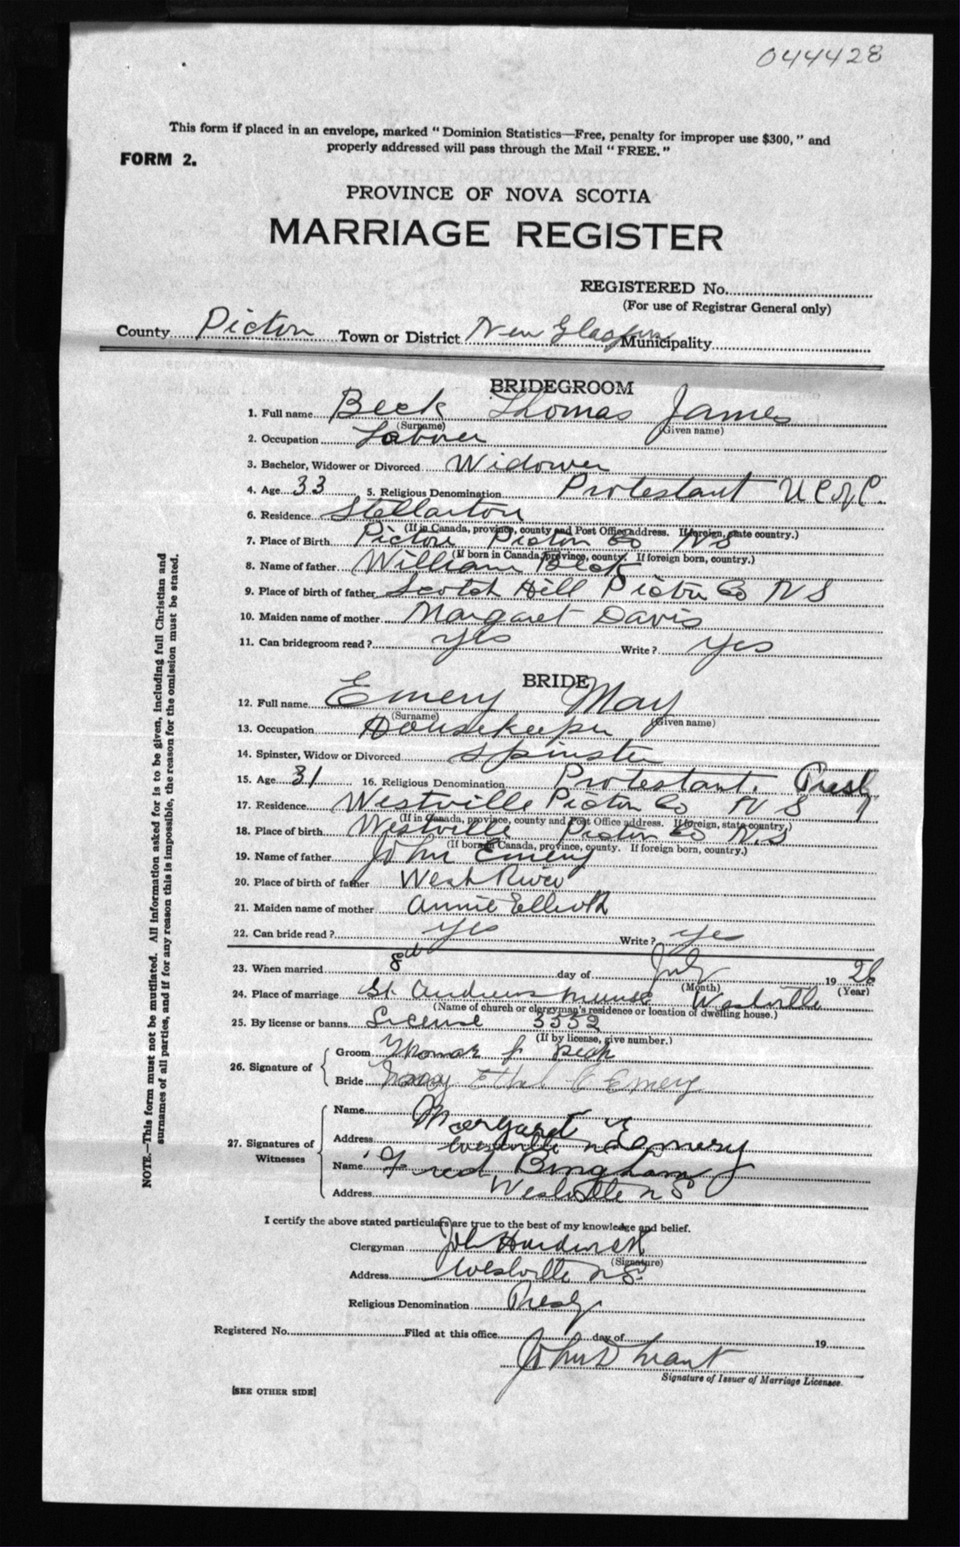 044428
This form if placed in an envelope, marked "Dominion Statistics—Free, penalty for improper use $300," and
properly addressed will pass through the Mail "FREE."
FORM 2.
PROVINCE OF NOVA SCOTIA
MARRIAGE REGISTER
REGISTERED No.
(For use of Registrar General only)
County Pictou Town or District New Glasgow Municipality
BRIDEGROOM
1. Full name Beck Thomas James
(Surname) (Given name)
2. Occupation Laborer
3. Bachelor, Widower or Divorced Widower
4. Age 33 5. Religious Denomination Protestant U.C. of C.
6. Residence Stellarton
(If in Canada, province, county and Post Office address. If foreign, state country.)
7. Place of Birth Pictou Pictou Co NS
(If born in Canada, province, county. If foreign born, country.)
8. Name of father William Beck
9. Place of birth of father Scotch Hill Pictou Co NS
10. Maiden name of mother Margaret Davis
11. Can bridegroom read? yes Write? yes
BRIDE
12. Full name Emery May
(Surname) (Given name)
13. Occupation Housekeeper
14. Spinster, Widow or Divorced Spinster
15. Age 31 16. Religious Denomination Protestant. Presby
17. Residence Westville Pictou Co NS
(If in Canada, province, county and Post Office address. If foreign, state country.)
18. Place of birth Westville Pictou Co N.S
(If born in Canada, province, county. If foreign born, country.)
19. Name of father John Emery
20. Place of birth of father West River
21. Maiden name of mother Annie Elliott
22. Can bride read? yes Write? yes
23. When married 8th day of July 1926
(Month) (Year)
24. Place of marriage St. Andrews Manse Westville
(Name of church or clergyman's residence or location of dwelling house.)
25. By license or banns License 3552
(If by license, give number.)
26. Signature of
Groom Thomas J Beck
Bride Ethel Emery
27. Signatures of Witnesses
Name Margaret E Emery
Address Westville NS
Name Fred Bingham
Address Westville NS
I certify the above stated particulars are true to the best of my knowledge and belief.
Clergyman John Hardwick
(Signature)
Address Westville NS.
Religious Denomination Presby
Registered No. Filed at this office day of 19
John D Grant
Signature of Issuer of Marriage Licenses.
[SEE OTHER SIDE]
NOTE.—This form must not be mutilated. All information asked for is to be given, including full Christian and
surnames of all parties, and if for any reason this is impossible, the reason for the omission must be stated.